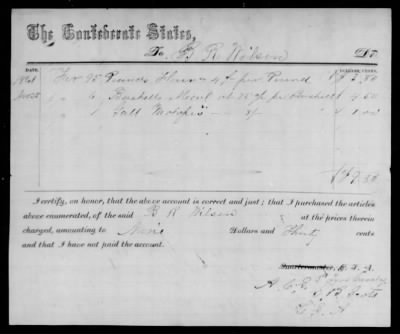 The Confederate States,
To B R Wilson Dr
DATE. DOLLARS. CENTS.
1861 For 95 Pounds Flour 4 ¢ per Pound $ 3.80
6 Bushells at 75 ¢ pr Bushell 4.50
1 Gall 1.00
$ 9.30
I certify, on honor, that the above account is correct and just; that I purchased the articles
above enumerated, of the said B R Wilson at the prices therein
charged, amounting to Nine Dollars and Thirty cents
and that I have not paid the account.
Quartermaster, C. S. A.
A. C. S.
C. S. A